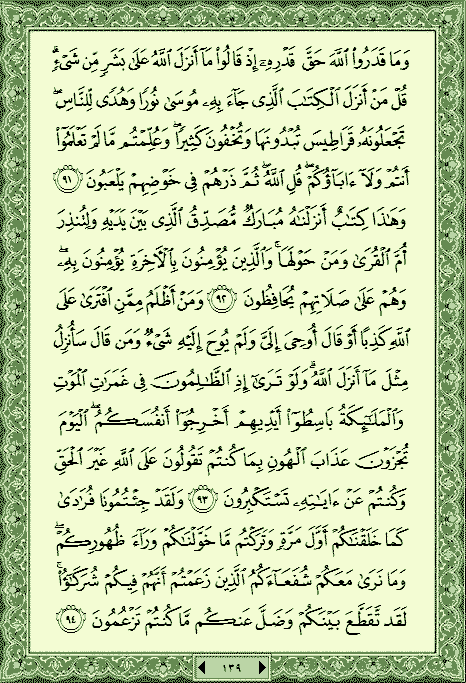 وَمَا قَدَرُوا۟ ٱللَّهَ حَقَّ قَدْرِهِۦٓ إِذْ قَالُوا۟ مَآ أَنزَلَ ٱللَّهُ عَلَىٰ بَشَرٍ مِّن شَىْءٍ ۗ
قُلْ مَنْ أَنزَلَ ٱلْكِتَـٰبَ ٱلَّذِى جَآءَ بِهِۦ مُوسَىٰ نُورًا وَهُدًى لِّلنَّاسِ ۖ
تَجْعَلُونَهُۥ قَرَاطِيسَ تُبْدُونَهَا وَتُخْفُونَ كَثِيرًا ۖ وَعُلِّمْتُم مَّا لَمْ تَعْلَمُوٓا۟
أَنتُمْ وَلَآ ءَابَآؤُكُمْ ۖ قُلِ ٱللَّهُ ۖ ثُمَّ ذَرْهُمْ فِى خَوْضِهِمْ يَلْعَبُونَ ۝٩١
وَهَـٰذَا كِتَـٰبٌ أَنزَلْنَـٰهُ مُبَارَكٌ مُّصَدِّقُ ٱلَّذِى بَيْنَ يَدَيْهِ وَلِتُنذِرَ
أُمَّ ٱلْقُرَىٰ وَمَنْ حَوْلَهَا ۚ وَٱلَّذِينَ يُؤْمِنُونَ بِٱلْـَٔاخِرَةِ يُؤْمِنُونَ بِهِۦ ۖ
وَهُمْ عَلَىٰ صَلَاتِهِمْ يُحَافِظُونَ ۝٩٢ وَمَنْ أَظْلَمُ مِمَّنِ ٱفْتَرَىٰ عَلَى
ٱللَّهِ كَذِبًا أَوْ قَالَ أُوحِىَ إِلَىَّ وَلَمْ يُوحَ إِلَيْهِ شَىْءٌ وَمَن قَالَ سَأُنزِلُ
مِثْلَ مَآ أَنزَلَ ٱللَّهُ ۗ وَلَوْ تَرَىٰٓ إِذِ ٱلظَّـٰلِمُونَ فِى غَمَرَٰتِ ٱلْمَوْتِ
وَٱلْمَلَـٰٓئِكَةُ بَاسِطُوٓا۟ أَيْدِيهِمْ أَخْرِجُوٓا۟ أَنفُسَكُمُ ۖ ٱلْيَوْمَ
تُجْزَوْنَ عَذَابَ ٱلْهُونِ بِمَا كُنتُمْ تَقُولُونَ عَلَى ٱللَّهِ غَيْرَ ٱلْحَقِّ
وَكُنتُمْ عَنْ ءَايَـٰتِهِۦ تَسْتَكْبِرُونَ ۝٩٣ وَلَقَدْ جِئْتُمُونَا فُرَٰدَىٰ
كَمَا خَلَقْنَـٰكُمْ أَوَّلَ مَرَّةٍ وَتَرَكْتُم مَّا خَوَّلْنَـٰكُمْ وَرَآءَ ظُهُورِكُمْ ۖ
وَمَا نَرَىٰ مَعَكُمْ شُفَعَآءَكُمُ ٱلَّذِينَ زَعَمْتُمْ أَنَّهُمْ فِيكُمْ شُرَكَـٰٓؤُا۟ ۚ
لَقَد تَّقَطَّعَ بَيْنَكُمْ وَضَلَّ عَنكُم مَّا كُنتُمْ تَزْعُمُونَ ۝٩٤
١٣٩